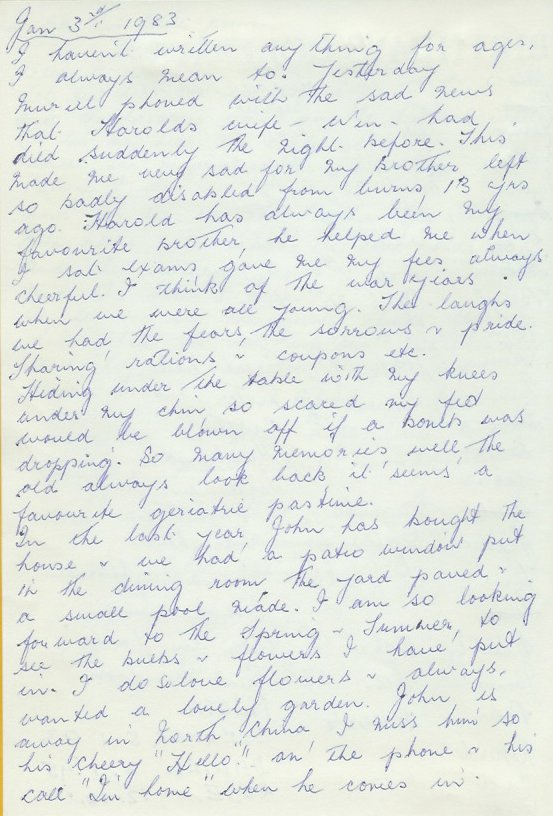 Jan 3rd 1983
I haven't written anything for ages,
I always mean to. Yesterday
Muriel phoned with the sad news
that Harolds wife - Win - had
died suddenly the night before. This
made me very sad for my brother left
so badly disabled from burns 13 yrs
ago. Harold has always been my
favourite brother, he helped me when
I sat exams gave me my fees always
cheerful. I think of the war years
when we were all young. The laughs
we had, the fears, the sorrows & pride.
Sharing rations & coupons etc.
Hiding under the table with my knees
under my chin so scared my feet
would be blown off if a bomb was
dropping. So many memories well the
old always look back it seems a
favourite geriatric pastime.
In the last year John has bought the
house & we had a patio window put
in the dining room, the yard paved &
a small pool made. I am so looking
forward to the Spring & Summer, to
see the bulbs & flowers I have put
in. I do so love flowers & always
wanted a lovely garden. John is
away in North China I miss him so
his cheery "Hello" on the phone & his
call "I'm home" when he comes in.